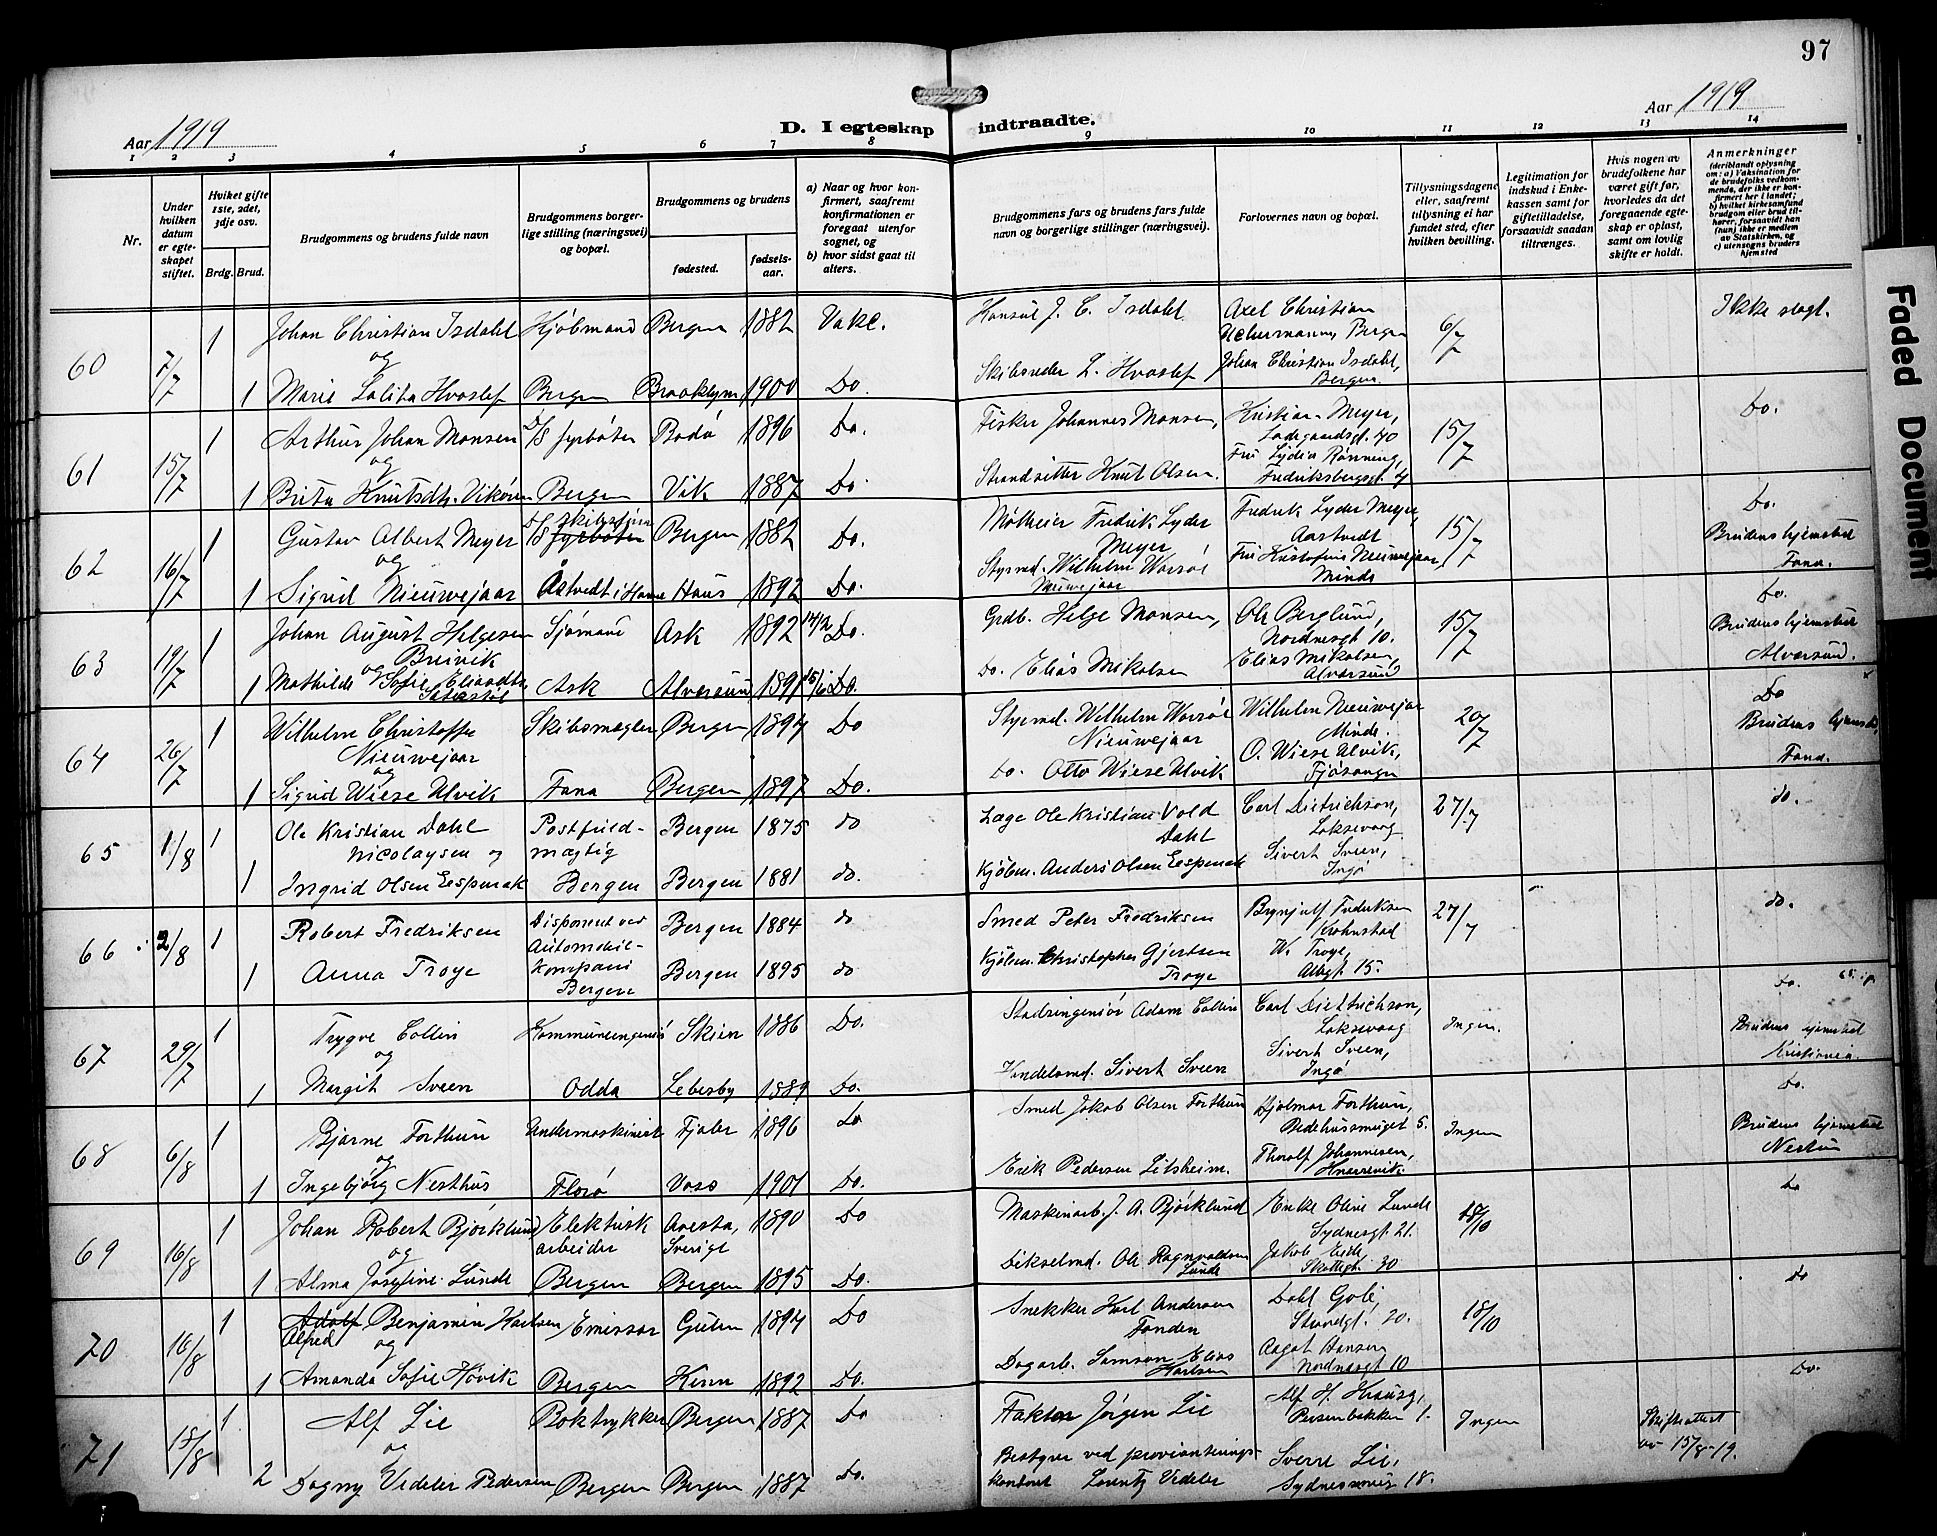 97
Aar 1919
D. I egteskap indtraadte.
Aar 1919
1 2 3 4 5 6 7 8 9 10 11 12 13 14
Nr.
Under hvilken datum er egteskapet stiftet.
Hviket gifte 1ste, 2det, 3dje osv.
Brdg. Brud.
Brudgommens og brudens fulde navn
Brudgommens borgerlige stilling (næringsvei) og bopæl.
Brudgommens og brudens
fødested.
fødselsaar.
a) Naar og hvor konfirmert, saafremt konfirmationen er foregaat utenfor sognet, og
b) hvor sidst gaat til alters.
Brudgommens fars og brudens fars fulde navn og borgerlige stillinger (næringsvei).
Forlovernes navn og bopæl.
Tillysningsdagene eller, saafremt tillysning ei har fundet sted, efter hvilken bevilling.
Legitimation for indskud i Enkekassen samt for giftetilladelse, forsaavidt saadan tiltrænges.
Hvis nogen av brudefolkene har været gift før, hvorledes da det foregaaende egteskap er opløst, samt om lovlig skifte er holdt.
Anmerkninger
(deriblandt oplysning om: a) Vaksination for de brudefolks vedkommende, der ikke er konfirmert her i landet; b) hvilket kirkesamfund brudgom eller brud tilhører, forsaavidt han (hun) ikke er medlem av Statskirken, og c) utensogns bruders hjemsted
60 7/7 1 Johan Christian Isdahl Kjøbmand Bergen 1882 Vakc. Konsul J. C. Isdahl Axel Christian Uchermann, Bergen 6/7 Ikke slegt.
og
1 Marie Lolita Hvoslef Bergen Brooklyn 1900 Do. Skibsreder L. Hvoslef Johan Christian Isdahl, Bergen
61 15/7 1 Arthur Johan Monsen D/S fyrbøter Bodø 1896 Do. Fisker Johannes Monsen, Kristian Meyer, Ladegaardsgt. 40 15/7 Do.
og
1 Brita Knutsdtr. Vikøren Bergen Vik 1887 Do. Strandsitter Knut Olsen. Fru Lydia Rønning, Fredriksbergsgt. 4
62 16/7 1 Gustav Albert Meyer D/S fyrbøter Bergen 1882 Do. Fredrik Lyder Meyer Fredrik Lyder Meyer, Aastvedt 15/7 Do. Brudens hjemsted Fana.
og
1 Sigrid Nieuwejaar Åstvedt i Hamre Haus 1892 Do. Styrmd. Wilhelm Worsøe Nieuwejaar Nieuwejaar, Minde
63 19/7 1 Johan August Helgesen Breivik Sjømand Ask 1892 Do. Grdb. Helge Monsen, Ole Berglund, Nordnesgt 10. 15/7 Do. Brudens hjemsted Alversund.
og
1 Mathilde Sofie Eliasdtr. Ask Alversund 1891 Do. Do. Elias Mikalsen Elias Mikalsen, Alversund
64 26/7 1 Wilhelm Christoffer Nieuwejaar Skibsmægler Bergen 1894 Do Styrmd. Wilhelm Worsøe Nieuwejaar Wilhelm Nieuwejaar Minde. 20/7 Do Brudens hjemsted, Fana.
og
1 Sigrid Wiese Ulvik Fana Bergen 1897 Do. Do. Otto Wiese Ulvik O. Wiese Ulvik, Fjøsanger
65 1/8 1 Ole Kristian Dahl Nicolaysen og Postfuldmægtig Bergen 1875 do Læge Ole Kristian Vold Dahl Carl Dietrichson, Laksevaag 27/7 do.
1 Ingrid Olsen Eespenak Bergen Bergen 1881 do. Kjøbm. Anders Olsen Eespenak Sivert Sveen, Ingø
66 2/8 1 Robert Fredriksen Disponent ved Automobilkompani Bergen Bergen 1884 do Smed Peter Fredriksen Brynjulf Fredriksen Krohnstad 27/7 do.
1 Anna Troye Bergen 1895 do Kjøbm. Christopher Gjertsen Troye W. Troye, Allegt 15.
67 29/7 1 Trygve Collin Kommuneingeniør Skien 1886 Do. Stadsingeniør Adam Collin Carl Diettrichson, Laksevaag Ingen. Do. Brudens hjemsted Kristiania.
og
1 Margit Sveen Odda Lebesby 1889 Do. Handelsmd. Sivert Sveen Sivert Sveen, Ingø
68 6/8 1 Bjarne Forthun Andenmaskinist Fjaler 1896 Do Smed Jakob Olsen Forthun Hjalmar Forthun, Bedehussmuget 5. Ingen Do. Brudens hjemsted Nesttun
og
1 Ingebjørg Nesthus Florø Voss 1901 Do. Erik Pedersen Thoralf Johannesen, Knarrevik
69 16/8 1 Johan Robert Bjørklund Elektrisk arbeider Avesta, Sverige 1890 Do Maskinarb. J. A. Bjørklund Enke Oline Lunde Sydnesgt. 21. 18/10 Do
og
1 Alma Josefine Lunde Bergen Bergen 1895 Do. Ole Ragnvaldsen Lunde Jakob Skottegt. 30
70 16/8 1 Adolf Alfred Benjamin Karlsen Emissær Gulen 1894 Do Snekker Karl Andersen Fonden Dahl Strandgt. 20. 18/10 Do
og
1 Amanda Sofie Høvik Bergen Kinn 1892 Do. Dagarb. Samson Elias Karlsen Aagot Hansen Nordnesgt 10
71 15/8 1 Alf Lie Boktrykker Bergen 1887 Do Faktor Jørgen Lie Alf H. Persenbakken 1. Ingen Skifteattest av 15/8-19. Do.
og
2 Dagny Vedeler Pedersen Bergen Bergen 1887 Do. Bestyrer ved provianteringskontoret Lorentz Vedeler Sverre Lie, Sydnessmug 18.
Faded Document